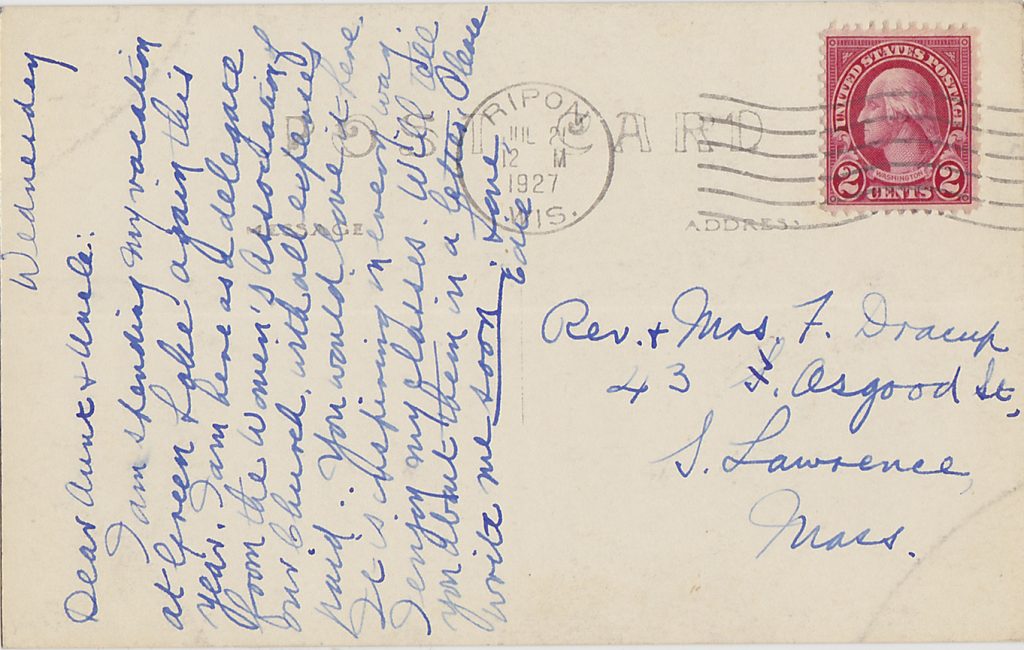 Wednesday
Dear Aunt & Uncle:
I am spending my vacation
at Green Lake again this
year. I am here as a delegate
from the Women's Association of
our Church, with all expenses
paid. You would love it here.
It is inspiring in every way.
I enjoy my classes. Will tell
you about them in a letter. Please
write me soon. Love
Edie
POST CARD
MESSAGE
ADDRESS
RIPON
JUL 21
12 M
1927
WIS.
UNITED STATES POSTAGE
WASHINGTON
2 CENTS 2
Rev. & Mrs. F. Dracup
43 S. Osgood St,
S. Lawrence,
Mass.